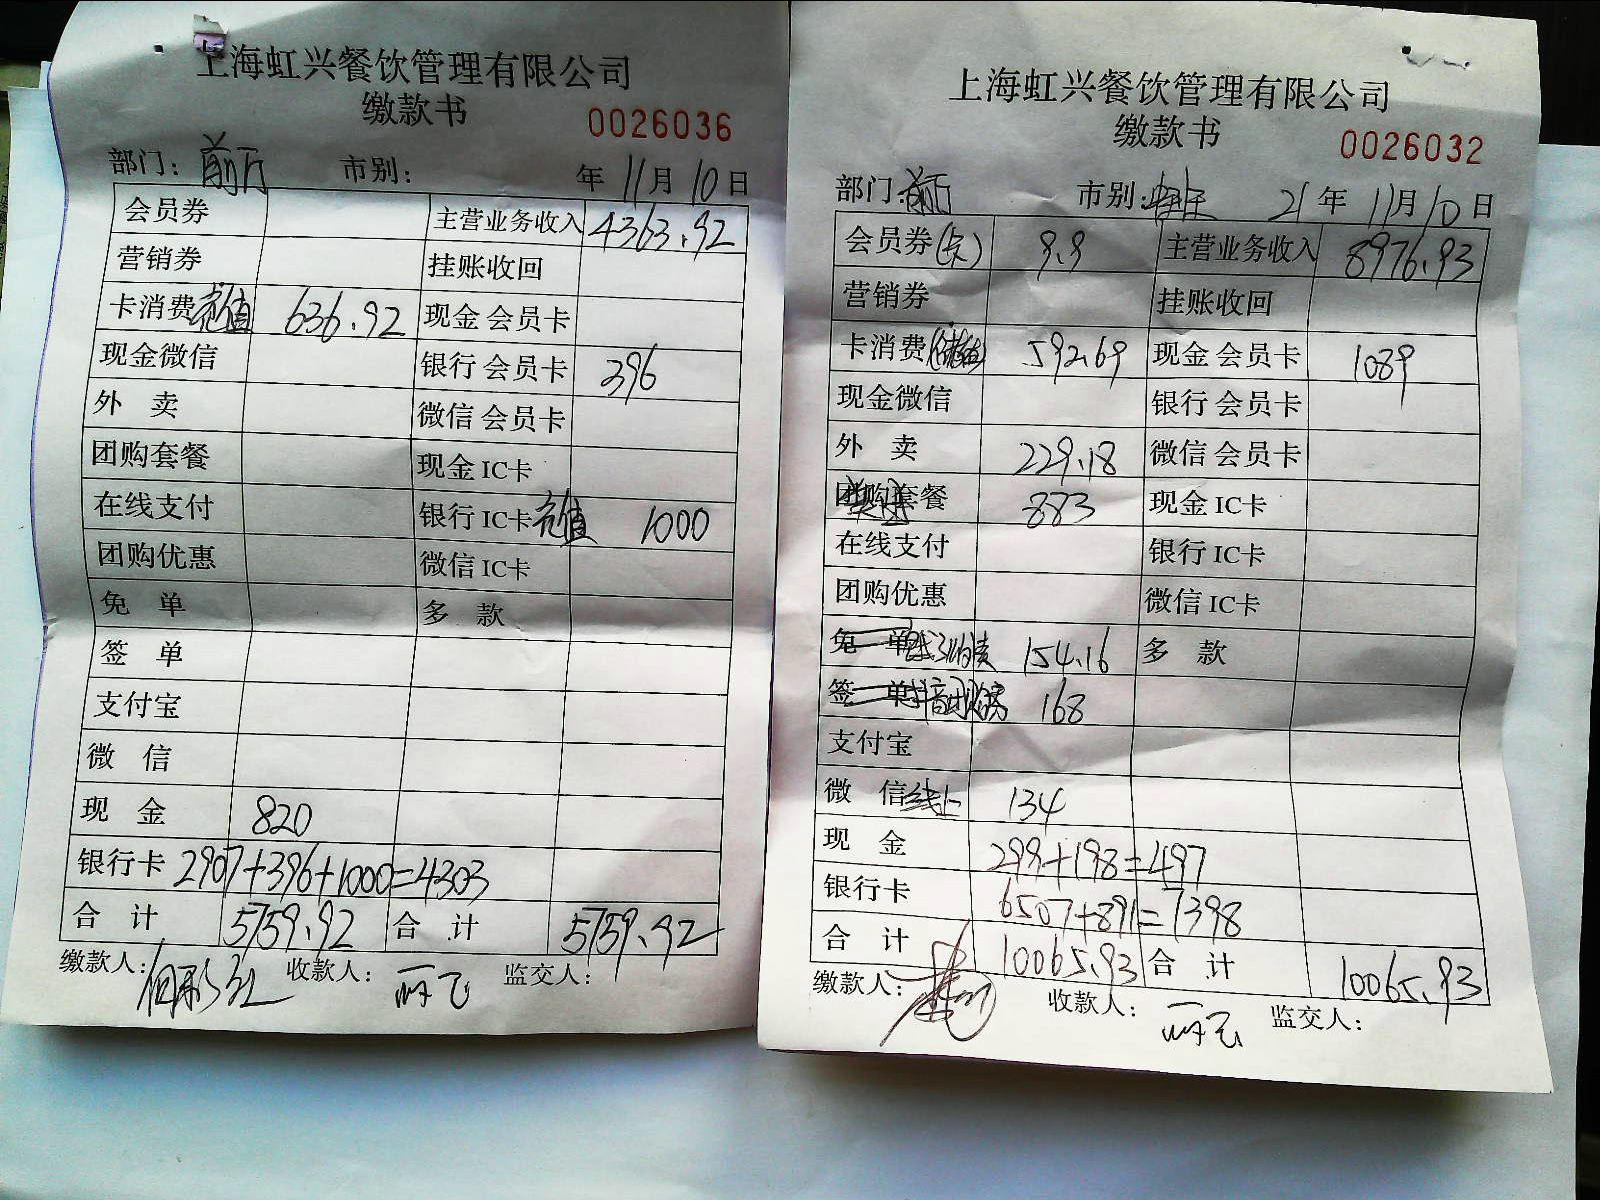 上海虹兴餐饮管理有限公司
缴款书 0026036
部门：前厅 市别： 年 11月 10日
会员券 主营业务收入 4363.92
营销券 挂账收回
卡消费充值 636.92 现金会员卡
现金微信 银行会员卡 396
外卖 微信会员卡
团购套餐 现金IC卡
在线支付 银行IC卡充值 1000
团购优惠 微信IC卡
免单 多款
签单
支付宝
微信
现金 820
银行卡 2907+396+1000=4303
合计 5759.92 合计 5759.92
缴款人： 收款人： 监交人：
上海虹兴餐饮管理有限公司
缴款书 0026032
部门：前厅 市别： 21年 11月 10日
会员券 9.9 主营业务收入 8976.93
营销券 挂账收回
卡消费 592.69 现金会员卡 1089
现金微信 银行会员卡
外卖 229.18 微信会员卡
团购套餐 883 现金IC卡
在线支付 银行IC卡
团购优惠 微信IC卡
免单 154.16 多款
签单 168
支付宝
微信线上 134
现金 299+198=497
银行卡 6507+891=7398
合计 10065.93 合计 10065.93
缴款人： 收款人： 监交人：